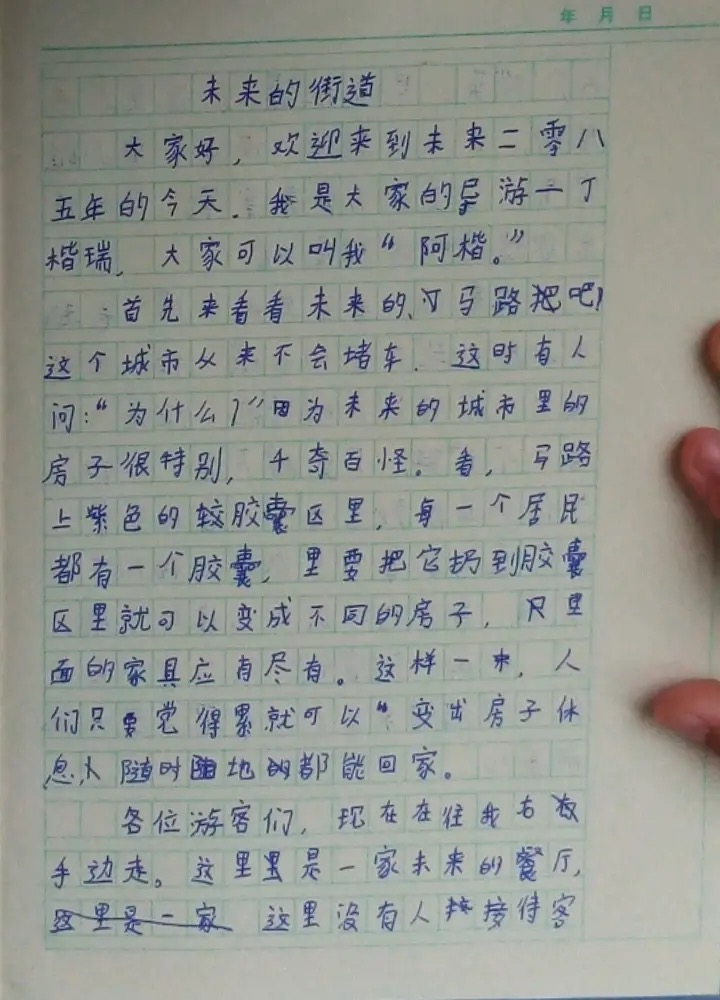 年 月 日
未来的街道
大家好，欢迎来到未来二零八
五年的今天．我是大家的导游一丁
楷瑞，大家可以叫我“阿楷。”
首先来看看未来的、马路把吧！
这个城市从来不会堵车．这时有人
问：“为什么？”因为未来的城市里的
房子很特别，千奇百怪。看，马路
上紫色的较胶囊区里，每一个居民
都有一个胶囊，里要把它扔到胶囊
区里就可以变成不同的房子，尺里
面的家具应有尽有。这样一来，人
们只要觉得累就可以“变出房子休
息，随时随地的都能回家。
各位游客们，现在在往我右
手边走。这里里是一家未来的餐厅，
这里没有人接待客